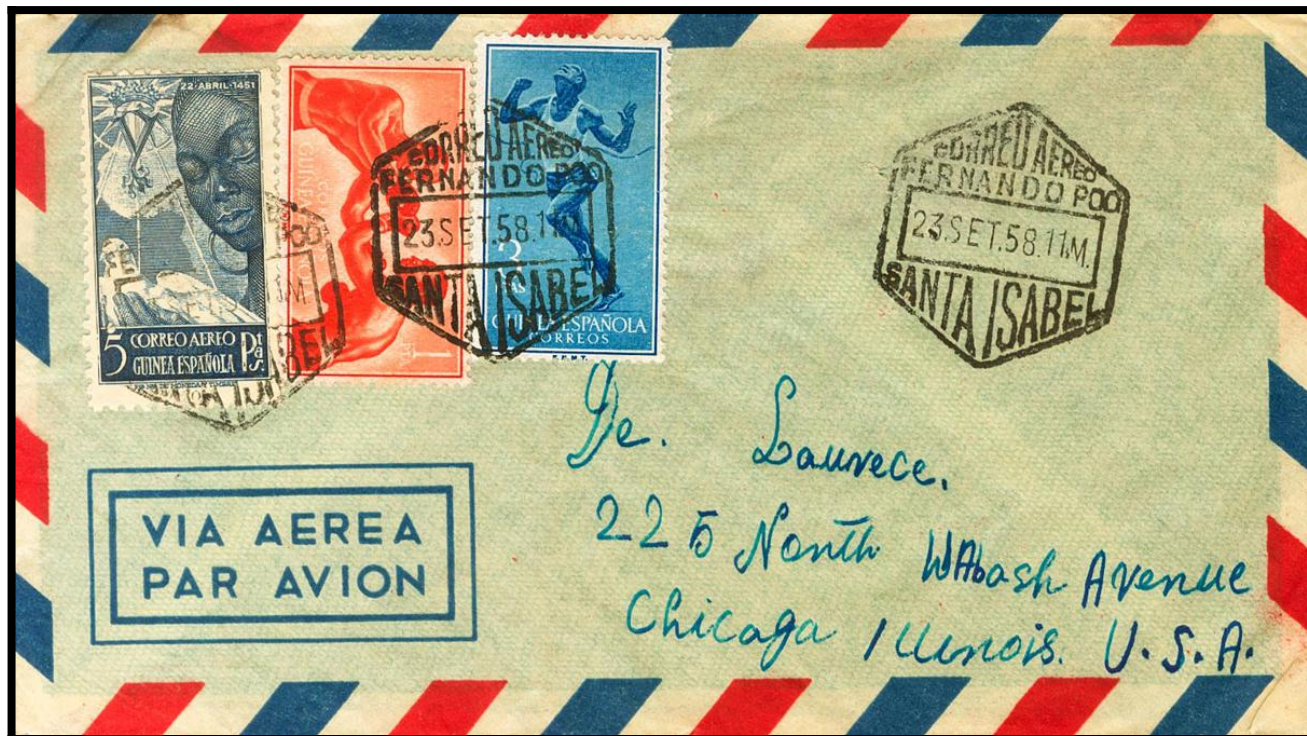 22·ABRIL·1451
5 CORREO AEREO Ptas.
GUINEA ESPAÑOLA
POO
ISABEL
CORREO AEREO
FERNANDO POO
23.SET.58.11M.
SANTA ISABEL
3
GUINEA ESPAÑOLA
CORREOS
F.N.M.T.
CORREO AEREO
FERNANDO POO
23.SET.58.11M.
SANTA ISABEL
VIA AEREA
PAR AVION
De. Laurece.
225 North WAbash Avenue
Chicaga Illinois. U.S.A.